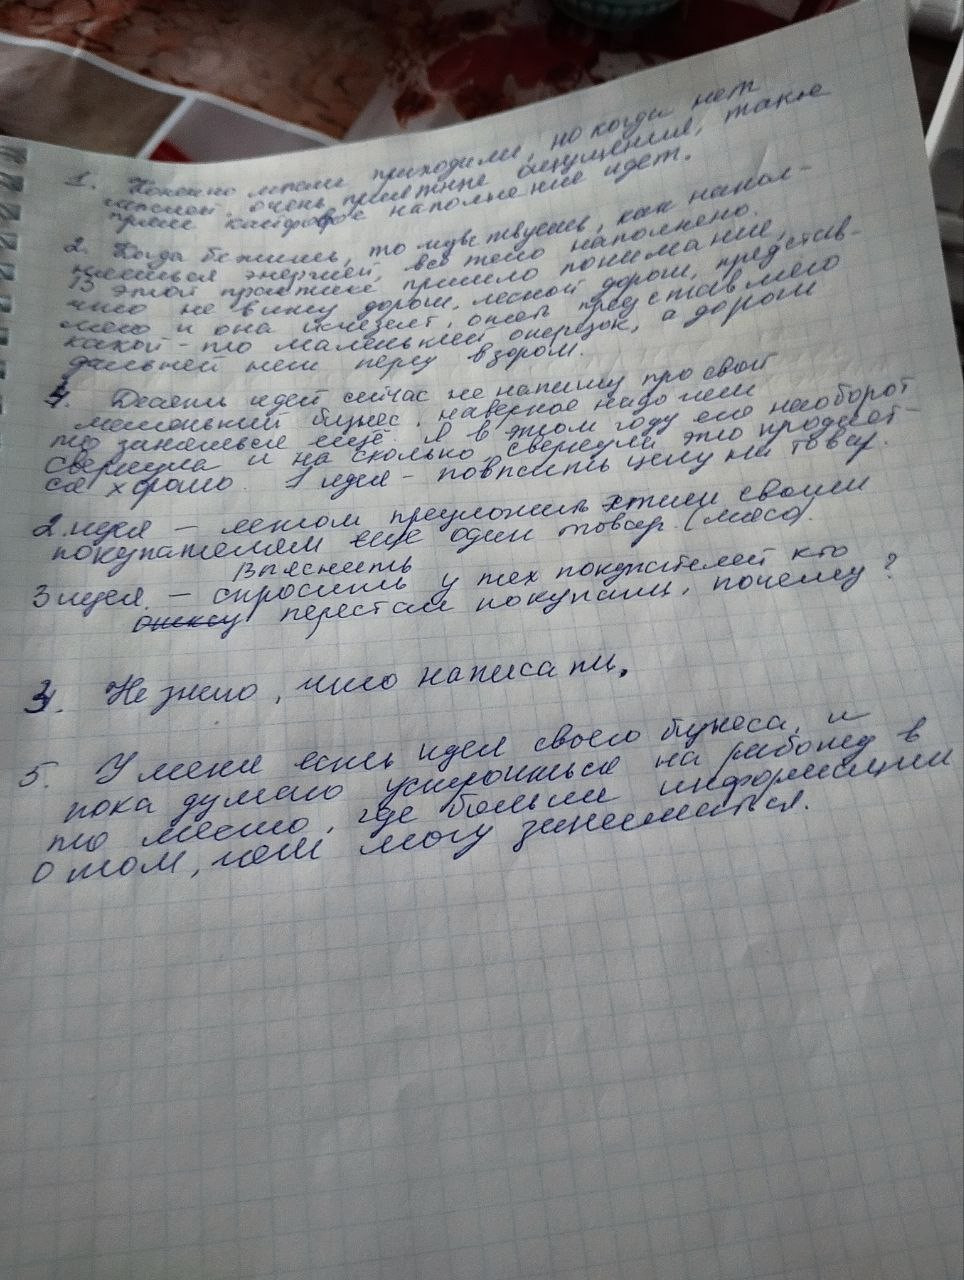 1. Конечно мысли приходили, но когда нет
мыслей, очень приятные ощущения, такое
прям кайфовое наполнение идет.
2. Когда бежишь, то чувствуешь, как напол-
няешься энергией, всё тело наполнено.
В этой практике пришло понимание,
что не вижу дороги, лесной дороги, представ-
ляю и она исчезает, опять представляю
какой-то маленький отрезок, а дороги
дальней нет перед взором.
4. Десять идей сейчас не напишу про свой
маленький бизнес, наверное надо чем
то заниматься ещё. Я в этом году его наоборот
свернула и на сколько свернула это продает-
ся хорошо. 1 идея - повысить цену на товар.
2 идея - летом предложить этим своим
покупателям еще один товар. (мясо).
Выяснить
3 идея. - спросить у тех покупателей кто
перестал покупать, почему?
3. Не знаю, что написать.
5. У меня есть идея своего бизнеса, и
пока думаю устроиться на работу в
то место, где больше информации
о том, чем могу заниматься.